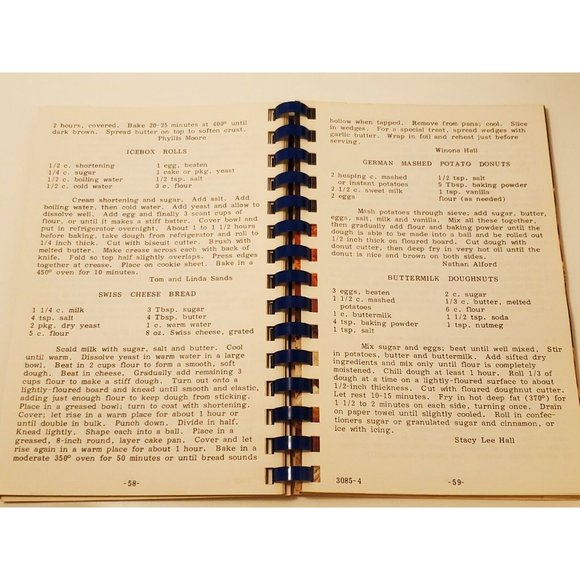 2 hours, covered. Bake 20-25 minutes at 400° until
dark brown. Spread butter on top to soften crust.
Phyllis Moore
ICEBOX ROLLS
1/2 c. shortening 1 egg, beaten
1/4 c. sugar 1 cake or pkg. yeast
1/2 c. boiling water 1/2 tsp. salt
1/2 c. cold water 3 c. flour
Cream shortening and sugar. Add salt. Add
boiling water, then cold water. Add yeast and allow to
dissolve well. Add egg and finally 3 scant cups of
flour, or until it makes a stiff batter. Cover bowl and
put in refrigerator overnight. About 1 to 1 1/2 hours
before baking, take dough from refrigerator and roll to
1/4 inch thick. Cut with biscuit cutter. Brush with
melted butter. Make crease across each with back of
knife. Fold so top half slightly overlaps. Press edges
together at crease. Place on cookie sheet. Bake in a
450° oven for 10 minutes.
Tom and Linda Sands
SWISS CHEESE BREAD
1 1/4 c. milk 3 Tbsp. sugar
4 tsp. salt 4 Tbsp. butter
2 pkg. dry yeast 1 c. warm water
5 c. flour 8 oz. Swiss cheese, grated
Scald milk with sugar, salt and butter. Cool
until warm. Dissolve yeast in warm water in a large
bowl. Beat in 2 cups flour to form a smooth, soft
dough. Beat in cheese. Gradually add remaining 3
cups flour to make a stiff dough. Turn out onto a
lightly-floured board and knead until smooth and elastic,
adding just enough flour to keep dough from sticking.
Place in a greased bowl; turn to coat with shortening.
Cover; let rise in a warm place for about 1 hour or
until double in bulk. Punch down. Divide in half.
Knead lightly. Shape each into a ball. Place in a
greased, 8-inch round, layer cake pan. Cover and let
rise again in a warm place for about 1 hour. Bake in a
moderate 350° oven for 50 minutes or until bread sounds
-58-
hollow when tapped. Remove from pans; cool. Slice
in wedges. For a special treat, spread wedges with
garlic butter. Wrap in foil and reheat just before
serving.
Winona Hall
GERMAN MASHED POTATO DONUTS
2 heaping c. mashed 1/2 tsp. salt
or instant potatoes 5 Tbsp. baking powder
2 1/2 c. sweet milk 1 tsp. vanilla
2 eggs flour (as needed)
Mash potatoes through sieve; add sugar, butter,
eggs, salt, milk and vanilla. Mix all these together,
then gradually add flour and baking powder until the
dough is able to be made into a ball and be rolled out
1/2 inch thick on floured board. Cut dough with
donut cutter, then deep fry in very hot oil until the
donut is nice and brown on both sides.
Nathan Alford
BUTTERMILK DOUGHNUTS
3 eggs, beaten 2 c. sugar
1 1/2 c. mashed 1/3 c. butter, melted
potatoes 6 c. flour
1 c. buttermilk 1 1/2 tsp. soda
4 tsp. baking powder 1 tsp. nutmeg
1 tsp. salt
Mix sugar and eggs; beat until well mixed. Stir
in potatoes, butter and buttermilk. Add sifted dry
ingredients and mix only until flour is completely
moistened. Chill dough at least 1 hour. Roll 1/3 of
dough at a time on a lightly-floured surface to about
1/2-inch thickness. Cut with floured doughnut cutter.
Let rest 10-15 minutes. Fry in hot deep fat (370°) for
1 1/2 to 2 minutes on each side, turning once. Drain
on paper towel until slightly cooled. Roll in confec-
tioners sugar or granulated sugar and cinnamon, or
ice with icing.
Stacy Lee Hall
3085-4 -59-